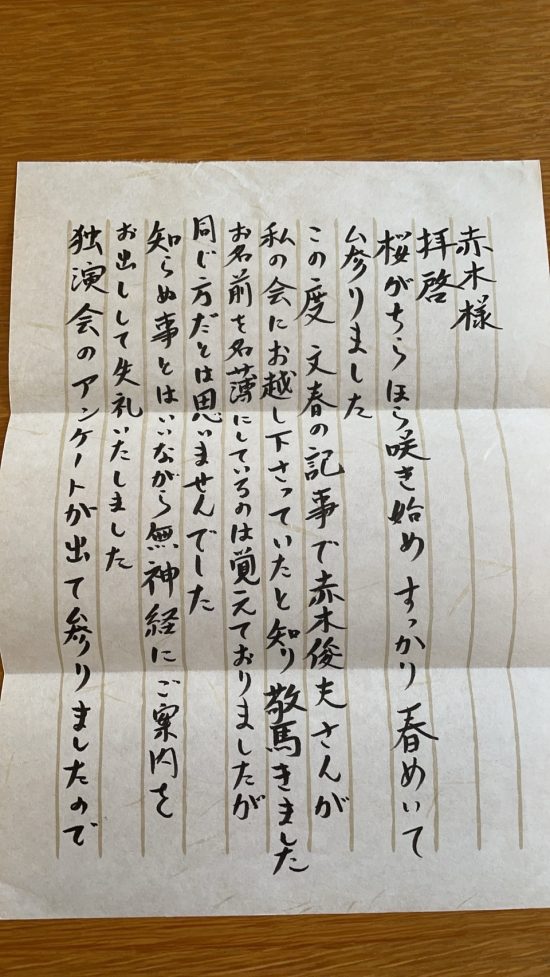 赤木様
拝啓
桜がちらほら咲き始めすっかり春めいて
参りました
この度文春の記事で赤木俊夫さんが
私の会にお越し下さっていたと知り驚きました
お名前を名簿にしているのは覚えておりましたが
同じ方だとは思いませんでした
知らぬ事とはいいながら無神経にご案内を
お出しして失礼いたしました
独演会のアンケートが出て参りましたので